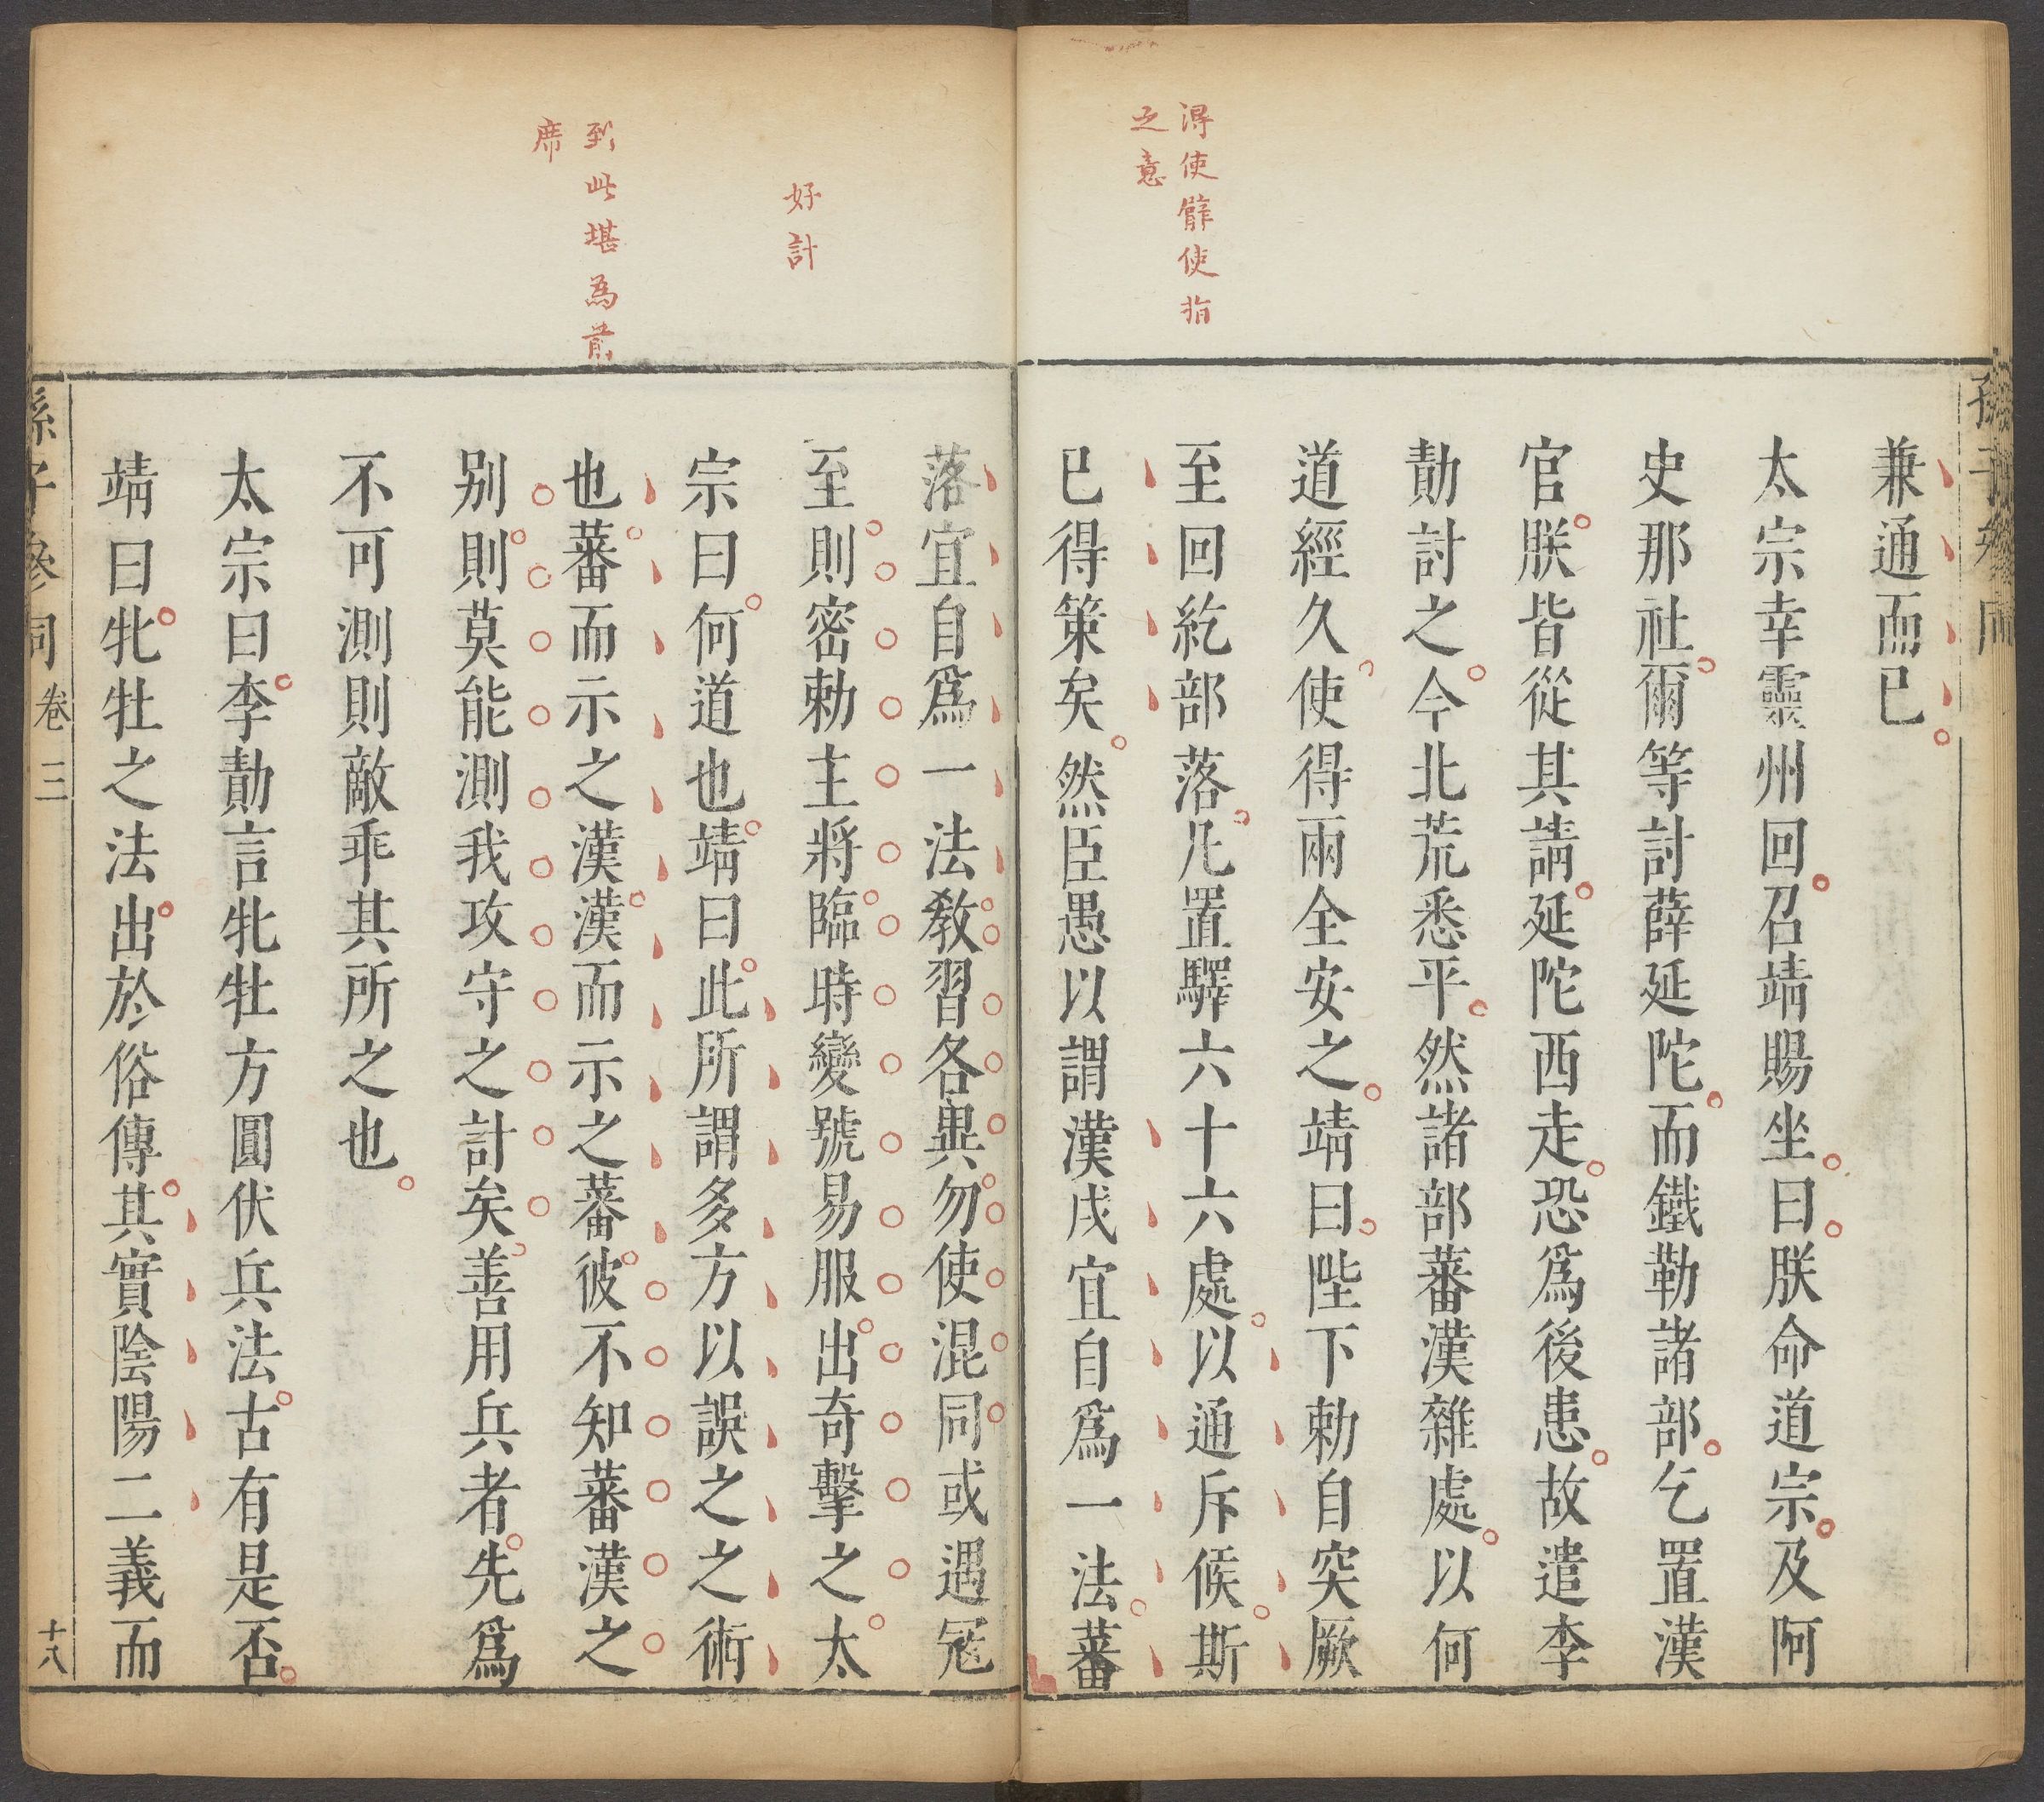 孫子參同
淂使臂使指
之意
兼通而已
太宗幸靈州回召靖賜坐曰朕命道宗及阿
史那社爾等討薛延陀而鐵勒諸部乞置漢
官朕皆從其請延陀西走恐爲後患故遣李
勣討之今北荒悉平然諸部蕃漢雜處以何
道經久使得兩全安之靖曰陛下勅自突厥
至回紇部落凡置驛六十六處以通斥候斯
已得策矣然臣愚以謂漢戍宜自爲一法蕃
好計
到此堪為前
席
落宜自爲一法教習各異勿使混同或遇寇
至則密勅主將臨時變號易服出奇擊之太
宗曰何道也靖曰此所謂多方以誤之之術
也蕃而示之漢漢而示之蕃彼不知蕃漢之
别則莫能測我攻守之計矣善用兵者先爲
不可測則敵乖其所之也
太宗曰李勣言牝牡方圓伏兵法古有是否
靖曰牝牡之法出於俗傳其實陰陽二義而
孫子參同 卷三 十八